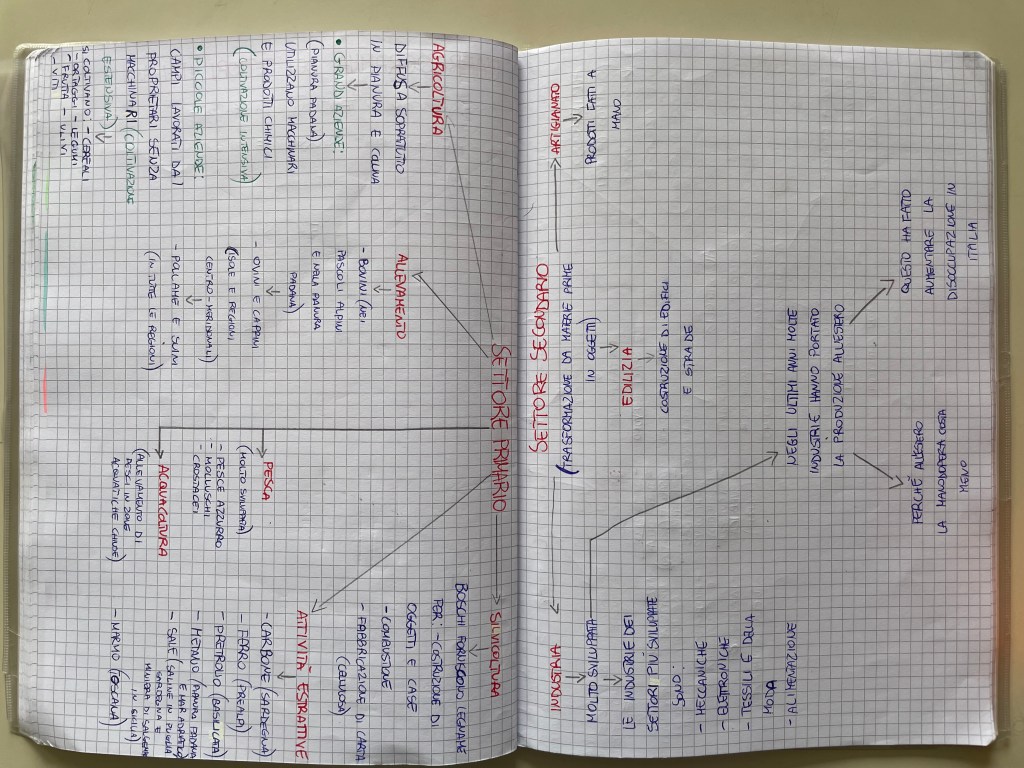 SETTORE PRIMARIO
AGRICOLTURA
DIFFUSA SOPRATUTTO
IN PIANURA E COLLINA
• GRANDI AZIENDE:
(PIANURA PADANA)
UTILIZZANO MACCHINARI
E PRODOTTI CHIMICI
(COLTIVAZIONE INTENSIVA)
• PICCOLE AZIENDE:
CAMPI LAVORATI DAI
PROPRIETARI SENZA
MACCHINARI (COLTIVAZIONE
ESTENSIVA)
SI COLTIVANO - CEREALI
- ORTAGGI - LEGUMI
- FRUTTA - ULIVI
- VITI
ALLEVAMENTO
- BOVINI (NEI
PASCOLI ALPINI
E NELLA PIANURA
PADANA)
- OVINI E CAPRINI
(ISOLE E REGIONI
CENTRO MERIDIONALI)
- POLLAME E SUINI
(IN TUTTE LE REGIONI)
PESCA
(MOLTO SVILUPPATA)
- PESCE AZZURRO
- MOLLUSCHI
- CROSTACEI
ACQUACOLTURA
(ALLEVAMENTO DI
PESCI IN ZONE
ACQUATICHE CHIUSE)
SILVICOLTURA
BOSCHI FORNISCONO LEGNAME
PER: - COSTRUZIONE DI
OGGETTI E CASE
- COMBUSTIONE
- FABBRICAZIONE DI CARTA
(CELLULOSA)
ATTIVITÀ ESTRATTIVE
- CARBONE (SARDEGNA)
- FERRO (PREALPI)
- PETROLIO (BASILICATA)
- METANO (PIANURA PADANA
E MAR ADRIATICO)
- SALE (SALINE IN PUGLIA
SARDEGNA E
MINIERA DI SALGEMMA
IN SICILIA)
- MARMO (TOSCANA)
SETTORE SECONDARIO
(TRASFORMAZIONE DA MATERIE PRIME
IN OGGETTI)
ARTIGIANATO
PRODOTTI FATTI A
MANO
EDILIZIA
COSTRUZIONE DI EDIFICI
E STRADE
INDUSTRIA
MOLTO SVILUPPATA
LE INDUSTRIE DEI
SETTORI PIU SVILUPPATE
SONO:
- MECCANICHE
- ELETTRONICHE
- TESSILI E DELLA
MODA
- ALIMENTAZIONE
NEGLI ULTIMI ANNI MOLTE
INDUSTRIE HANNO PORTATO
LA PRODUZIONE ALL'ESTERO
QUESTO HA FATTO
AUMENTARE LA
DISOCCUPAZIONE IN
ITALIA
PERCHÉ ALL'ESTERO
LA MANODOPERA COSTA
MENO